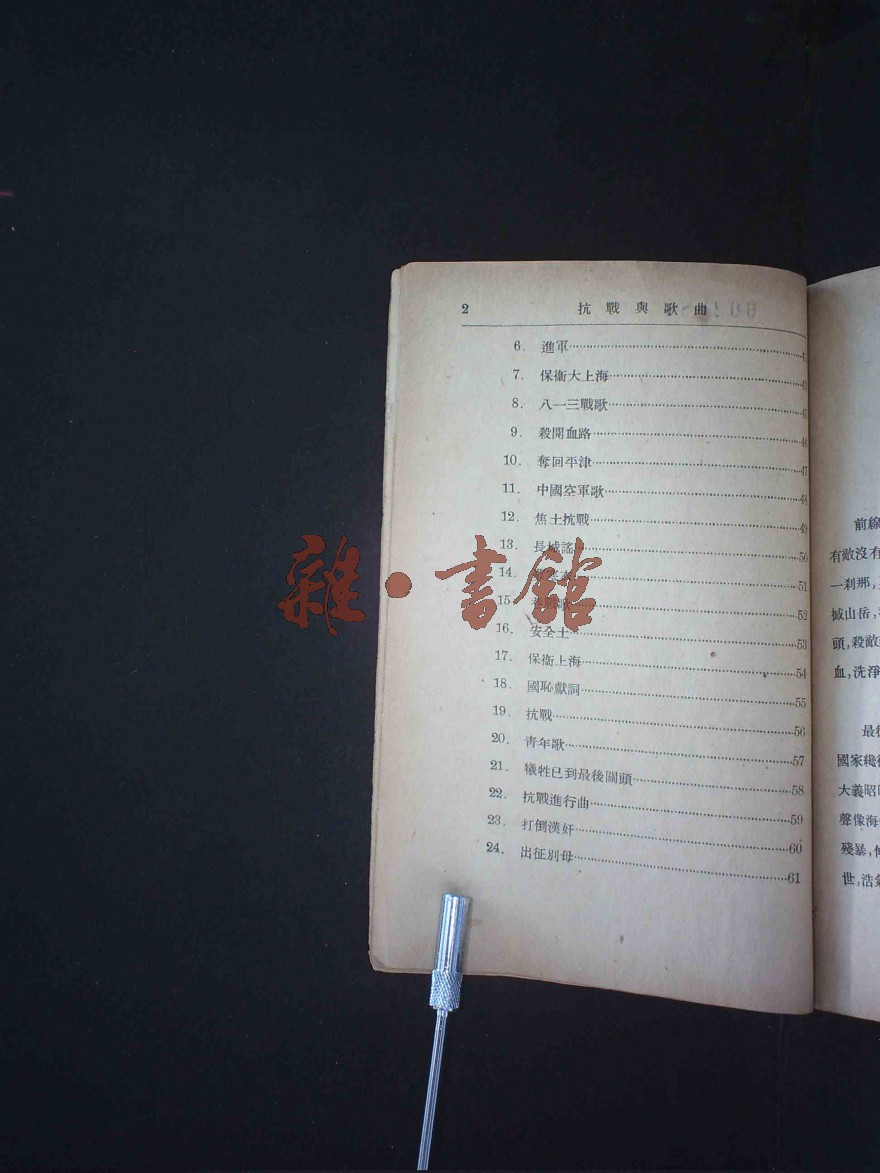 2 抗戰與歌曲
6. 進軍
7. 保衞大上海
8. 八一三戰歌
9. 殺開血路 46
10. 奪回平津 47
11. 中國空軍歌 48
12. 焦土抗戰 49
13. 長城謠 50
14. 51
15. 戰歌 52
16. 安全土 53
17. 保衞上海 54
18. 國恥獻詞 55
19. 抗戰 56
20. 靑年歌 57
21. 犧牲已到最後關頭 58
22. 抗戰進行曲 59
23. 打倒漢奸 60
24. 出征別母 61
雜·書館
前線
有敵沒有
一刹那,
撼山岳,
頭,殺敵
血,洗淨
最後
國家纔
大義昭
聲像海
殘暴,
世,浩氣